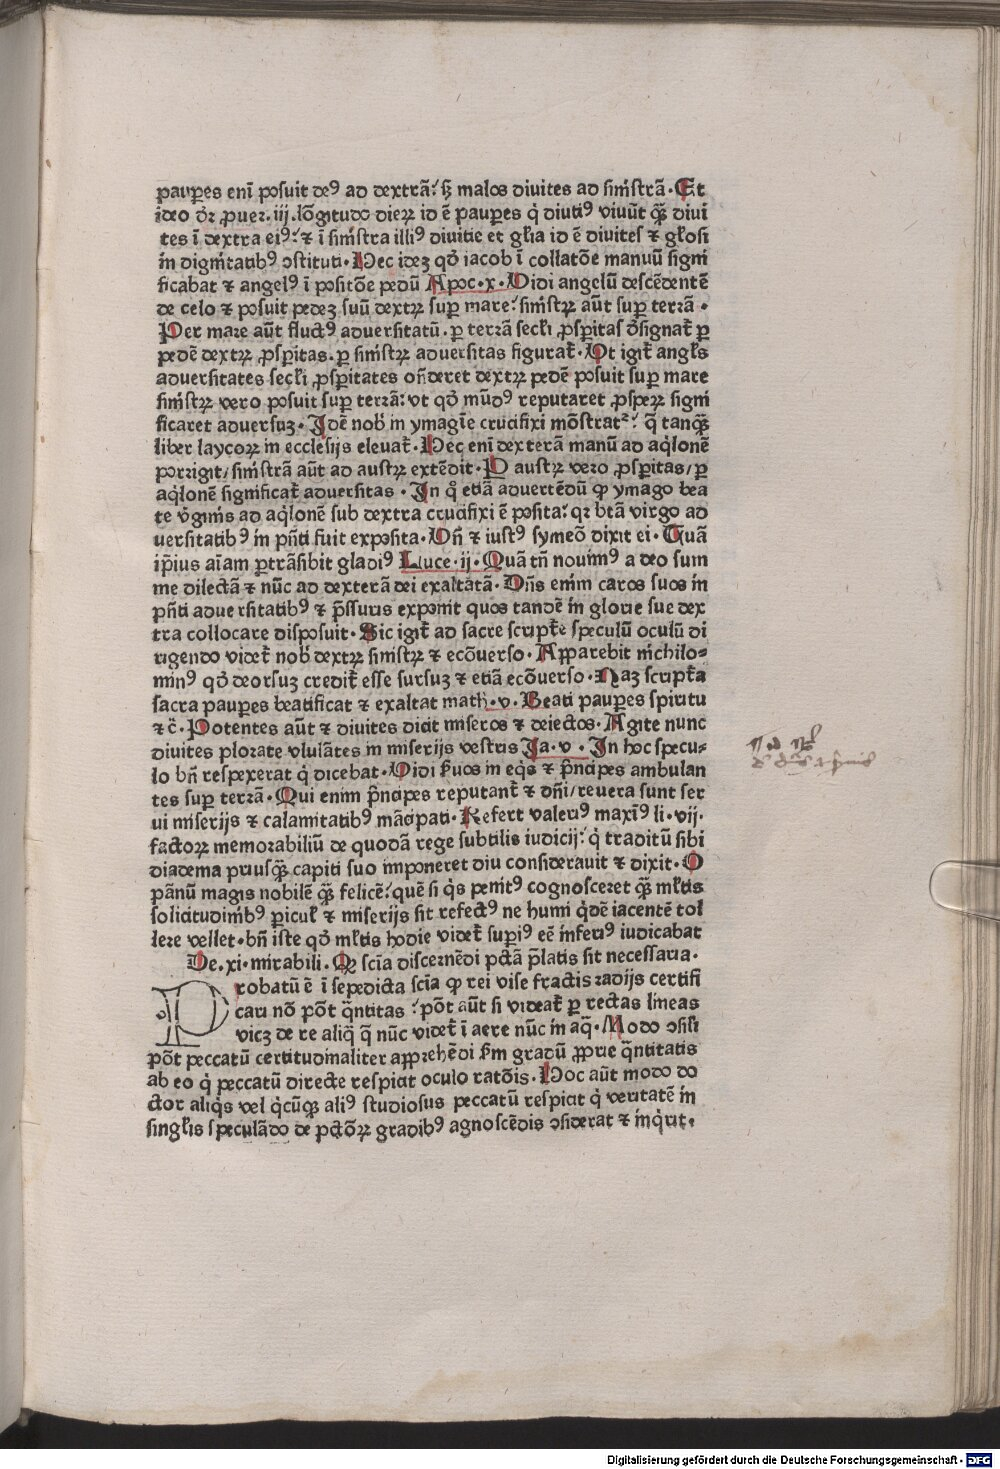 paup̲es enī posuit deꝰ ad dextrā: ſꝫ malos divites ad siniſtrā. Et
ideo dr̄ ꝓuer. iij. lōgitudo dieꝝ id ē paup̲es q̇ diutiꝰ vivūt qᷓꝫ divi
tes ī dextra eiꝰ: ⁊ ī siniſtra illiꝰ divitie et gl̄ia id ē diviteſ ⁊ gl̄osi
in dignitatibꝰ ↄstituti. Hec ideꝫ qd̄ iacob ī collatōe manuū signi
ficabat ⁊ angelꝰ ī positōe pedū Apoc. x. Vidi angelū descēdentē
de celo ⁊ posuit pedeꝫ suū dextꝝ sup̲ mare: siniſtꝝ aūt sup̲ terrā.
Per mare aūt fluctꝰ adversitatū. p̲ terrā secl̄i ꝓsp̲itas d̄signat̄ p̲
pedē dextꝝ ꝓsp̲itas. p̲ siniſtꝝ adversitas figurat̄. Vt igit̄ angl̄s
adversitates secl̄i ꝓsp̲itates on̄deret dextꝝ pedē posuit sup̲ mare
siniſtꝝ vero posuit sup̲ terrā: vt qd̄ mūdꝰ reputaret ꝓsp̲eꝝ signi
ficaret adversuꝫ. Idē nob̄ in ymagīe crucifixi mōstrat᷑: q̄ tanqᷓꝫ
liber laycoꝝ in ecclesijs elevat̄. Hec enī dexterā manū ad aq̇lonē
porrigit/ siniſtrā aūt ad austꝝ extēdit. P̲ austꝝ vero ꝓsp̲itas/ p̲
aq̇lonē significat̄ adversitas. In qͦ etiā advertēdū ꝙ ymago bea
te v̇ginis ad aq̇lonē sub dextra crucifixi ē posita: qꝛ btā virgo ad
uersitatibꝰ in pn̄ti fuit exposita. Vn̄ ⁊ iustꝰ symeō dixit ei. Tuā
ip̄ius aīam p̲trāsibit gladiꝰ Luce. ij. Quā tn̄ novimꝰ a deo sum
me dilectā ⁊ nūc ad dexterā dei exaltatā. Dn̄s enim caros suos in
pn̄ti adversitatibꝰ ⁊ p̄ssuris exponit quos tandē in glorie sue dex
tra collocare disposuit. Sic igit̄ ad sacre script̄e speculū oculū di
rigendo videt̄ nob̄ dextꝝ siniſtꝝ ⁊ ecōverso. Apparebit nichilo-
minꝰ qd̄ deorsuꝫ credit̄ esse sursuꝫ ⁊ etiā ecōverso. Naꝫ script̄a
sacra paup̲es beatificat ⁊ exaltat math. v. Beati paup̲es spiritu
⁊ c̄. Potentes aūt ⁊ divites dicit miseros ⁊ deiectos. Agite nunc
divites plorate vlulātes in miserijs vestris Ja. v. In hoc specu-
lo bn̄ respexerat q̇ dicebat. Vidi s̄vos in eq̇s ⁊ p̄ncipes ambulan
tes sup̲ terrā. Qui enim p̄ncipes reputant̄ ⁊ dn̄i/ revera sunt ser
ui miserijs ⁊ calamitatibꝰ mācipati. Refert valeriꝰ maxīꝰ li. vij.
factoꝝ memorabiliū de quodā rege subtilis iudicij: q̇ traditū sibi
diadema priusqᷓꝫ capiti suo imponeret diu consideravit ⁊ dixit. O
pānū magis nobilē qᷓꝫ felicē: quē si q̇s penitꝰ cognosceret qᷓꝫ ml̄tis
solicitudinibꝰ p̲icul̄ ⁊ miserijs sit refectꝰ ne humi q̇dē iacentē tol
lere vellet. bn̄ iste qd̄ ml̄tis hodie videt̄ sup̲iꝰ eē inferiꝰ iudicabat
De. xi. mirabili. Qꝫ scīa discernēdi pctā p̄latis sit necessaria.
Probatū ē ī sepedicta scīa ꝙ rei vise fractis radijs certifi
cari nō pōt q̄ntitas: pōt aūt si videat̄ p̲ rectas lineas
vicꝫ de re aliq̄ q̄ nūc videt̄ ī aere nūc in aq̄. Modo ↄsili
pōt peccatū certitudinaliter appꝛehēdi sm̄ gradū ꝓprie q̄ntitatis
ab eo q̇ peccatū directe respiciat oculo ratōis. Hoc aūt modo do
ctor aliq̇s vel q̇cūqꝫ aliꝰ studiosus peccatū respiciat q̇ veritatē in
singl̄is speculādo de pctōꝝ gradibꝰ agnoscēdis ↄsiderat ⁊ inq̇rit.
Digitalisierung gefördert durch die Deutsche Forschungsgemeinschaft - DFG